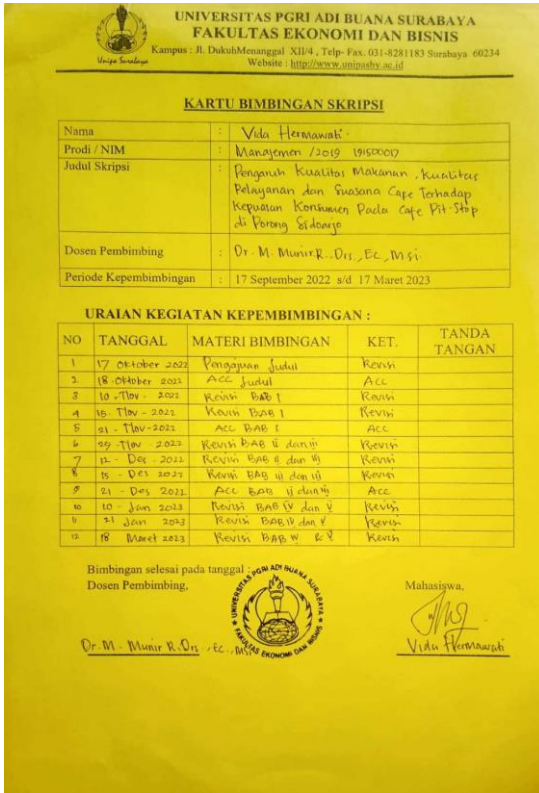 UNIVERSITAS PGRI ADI BUANA SURABAYA
FAKULTAS EKONOMI DAN BISNIS
Kampus : Jl. DukuhMenanggal XII/4 , Telp- Fax. 031-8281183 Surabaya 60234
Website : http://www.unipasby.ac.id
Unipa Surabaya
KARTU BIMBINGAN SKRIPSI
Nama : Vida Hermawati
Prodi / NIM : Manajemen / 2019 191500017
Judul Skripsi : Pengaruh Kualitas Makanan, Kualitas
Pelayanan dan Suasana Cafe Terhadap
Kepuasan Konsumen Pada Cafe Pit-Stop
di Porong Sidoarjo
Dosen Pembimbing : Dr. M. Munir R., Drs., Ec., M,si.
Periode Kepembimbingan : 17 September 2022 s/d 17 Maret 2023
URAIAN KEGIATAN KEPEMBIMBINGAN :
NO TANGGAL MATERI BIMBINGAN KET. TANDA TANGAN
1 17 Oktober 2022 Pengajuan Judul Revisi
2 18 Oktober 2022 ACC Judul ACC
3 10 - Nov - 2022 Revisi BAB I Revisi
4 15 - Nov - 2022 Revisi BAB I Revisi
5 21 - Nov - 2022 ACC BAB I ACC
6 29 - Nov - 2022 Revisi BAB ii dan iii Revisi
7 12 - Des - 2022 Revisi BAB ii dan iii Revisi
8 15 - Des 2022 Revisi BAB ii dan iii Revisi
9 21 - Des 2022 ACC BAB ii dan iii ACC
10 10 - Jan 2023 Revisi BAB IV dan V Revisi
11 21 Jan 2023 Revisi BAB IV dan V Revisi
12 18 Maret 2023 Revisi BAB IV & V Revisi
Bimbingan selesai pada tanggal :
Dosen Pembimbing, Mahasiswa,
UNIVERSITAS PGRI ADI BUANA SURABAYA
FAKULTAS EKONOMI DAN BISNIS
Dr. M. Munir R. Drs., Ec., MSi Vida Hermawati